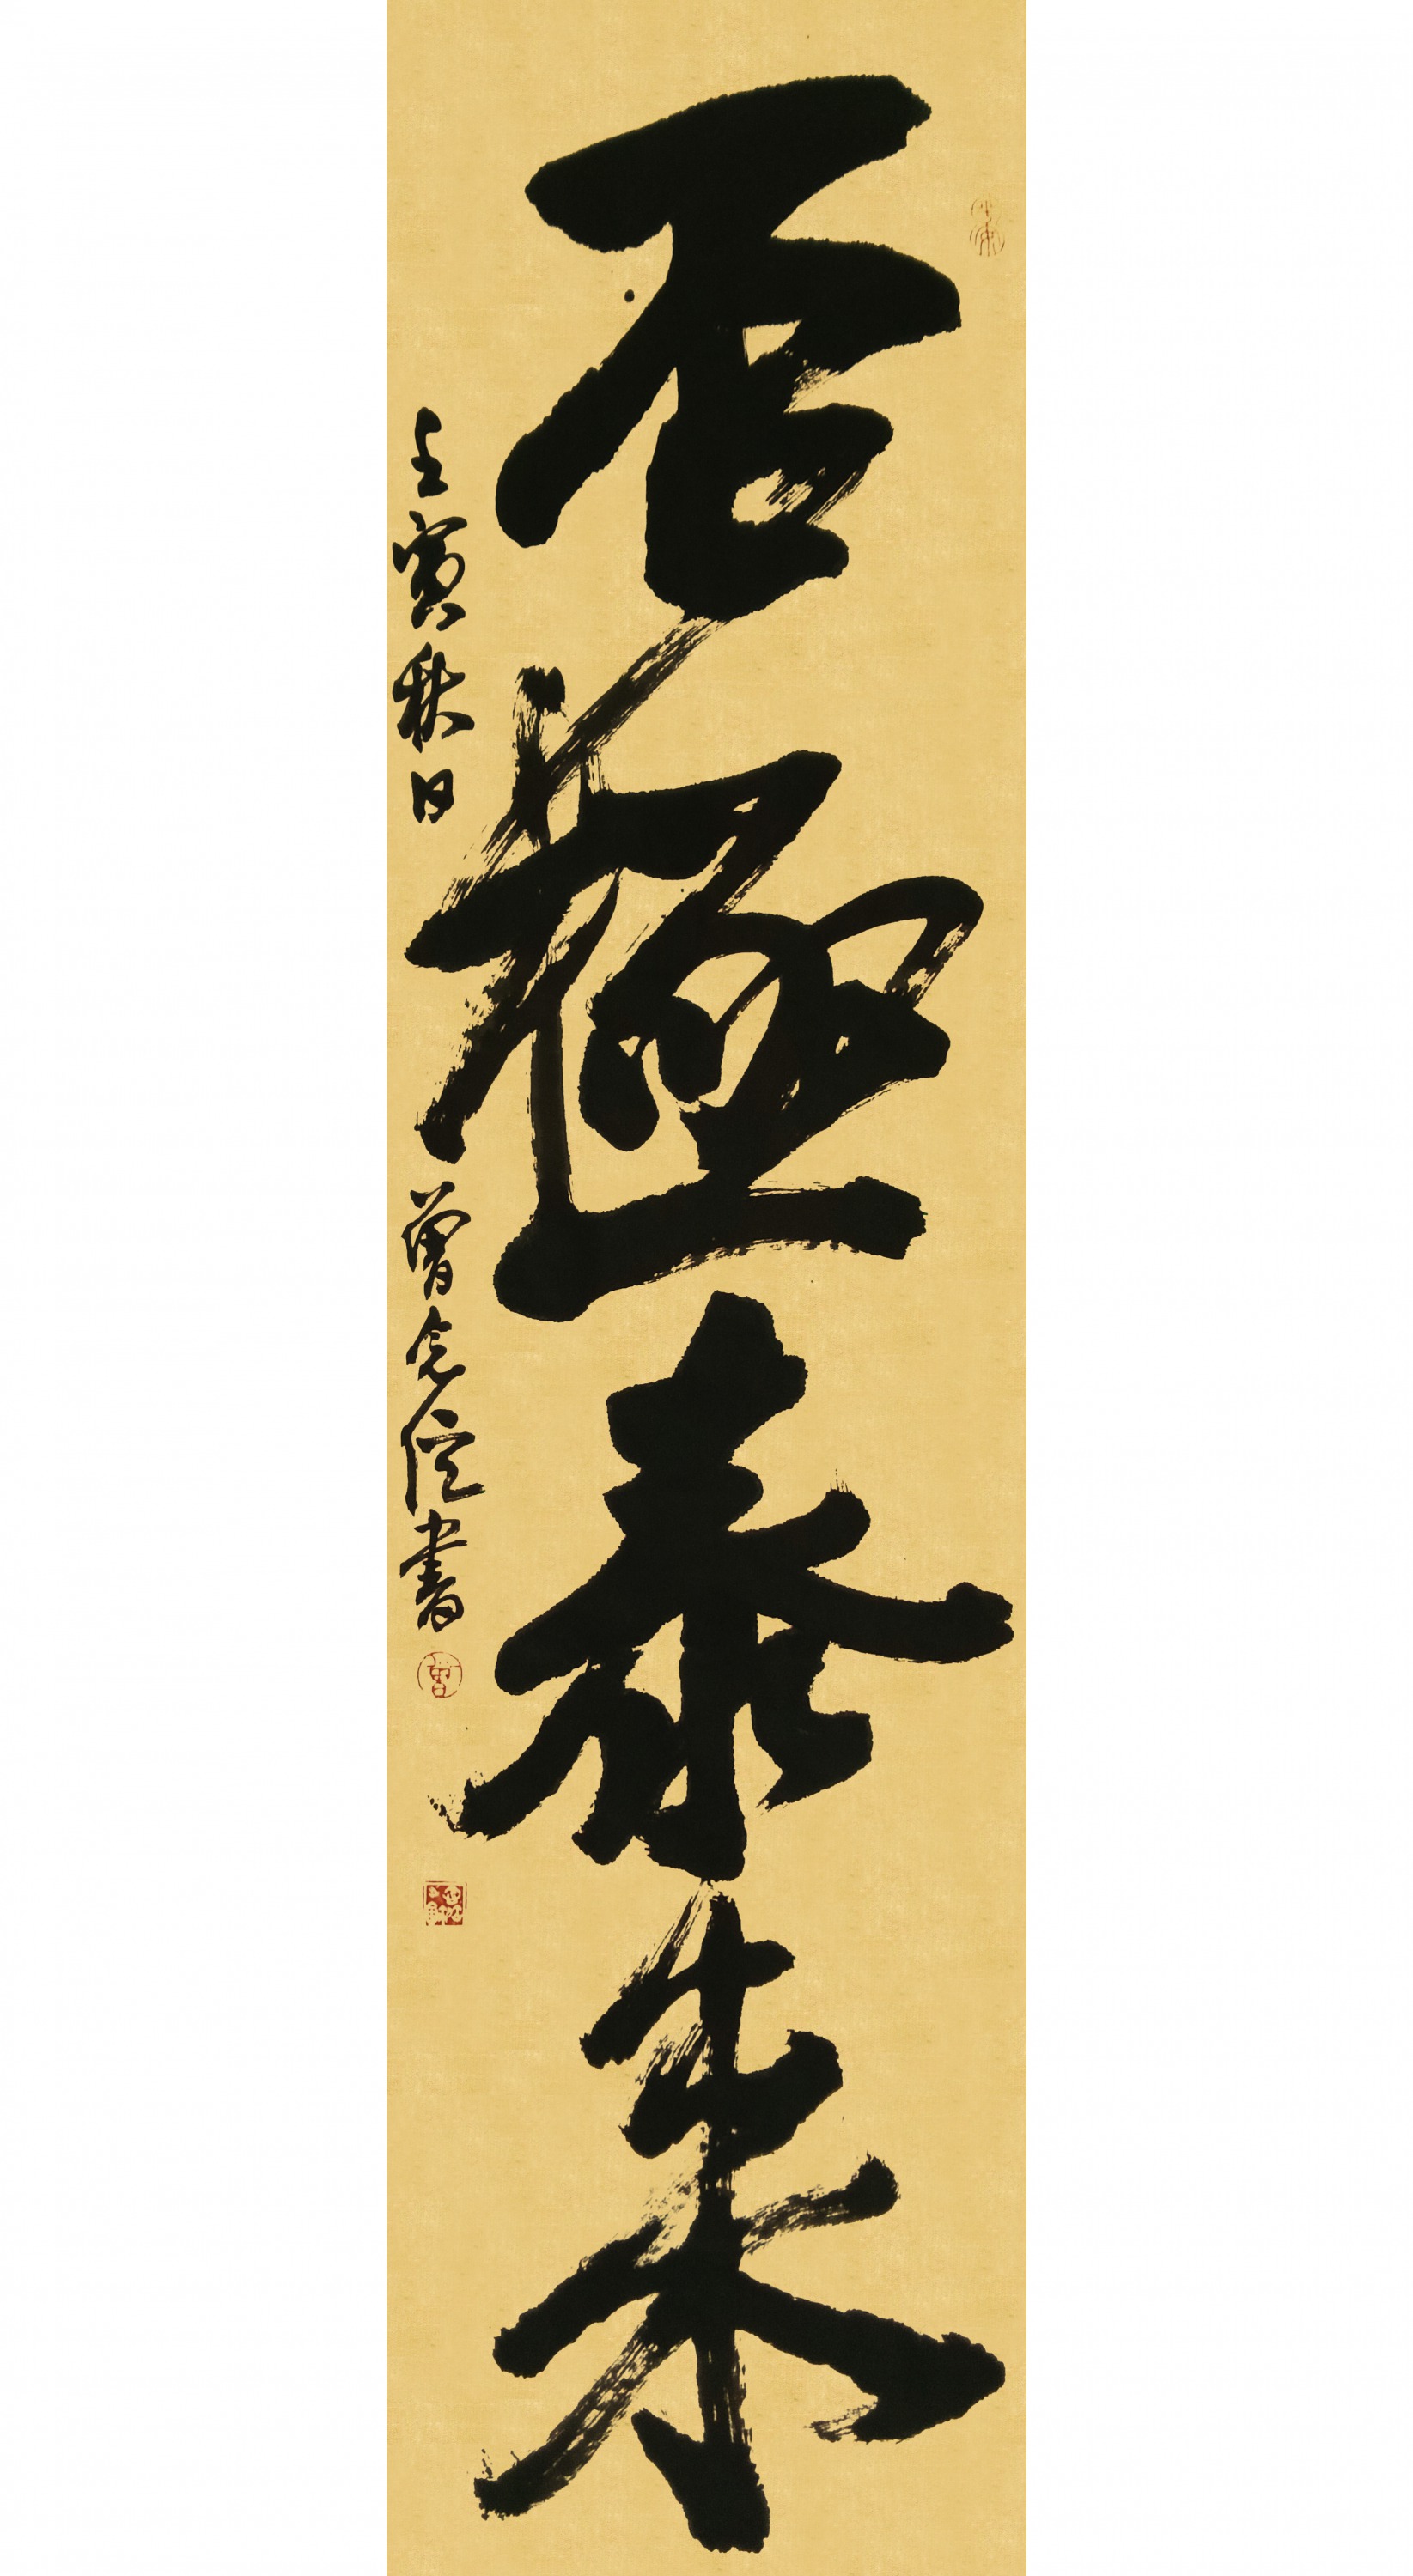 否極泰来
壬寅秋日
曾令信書